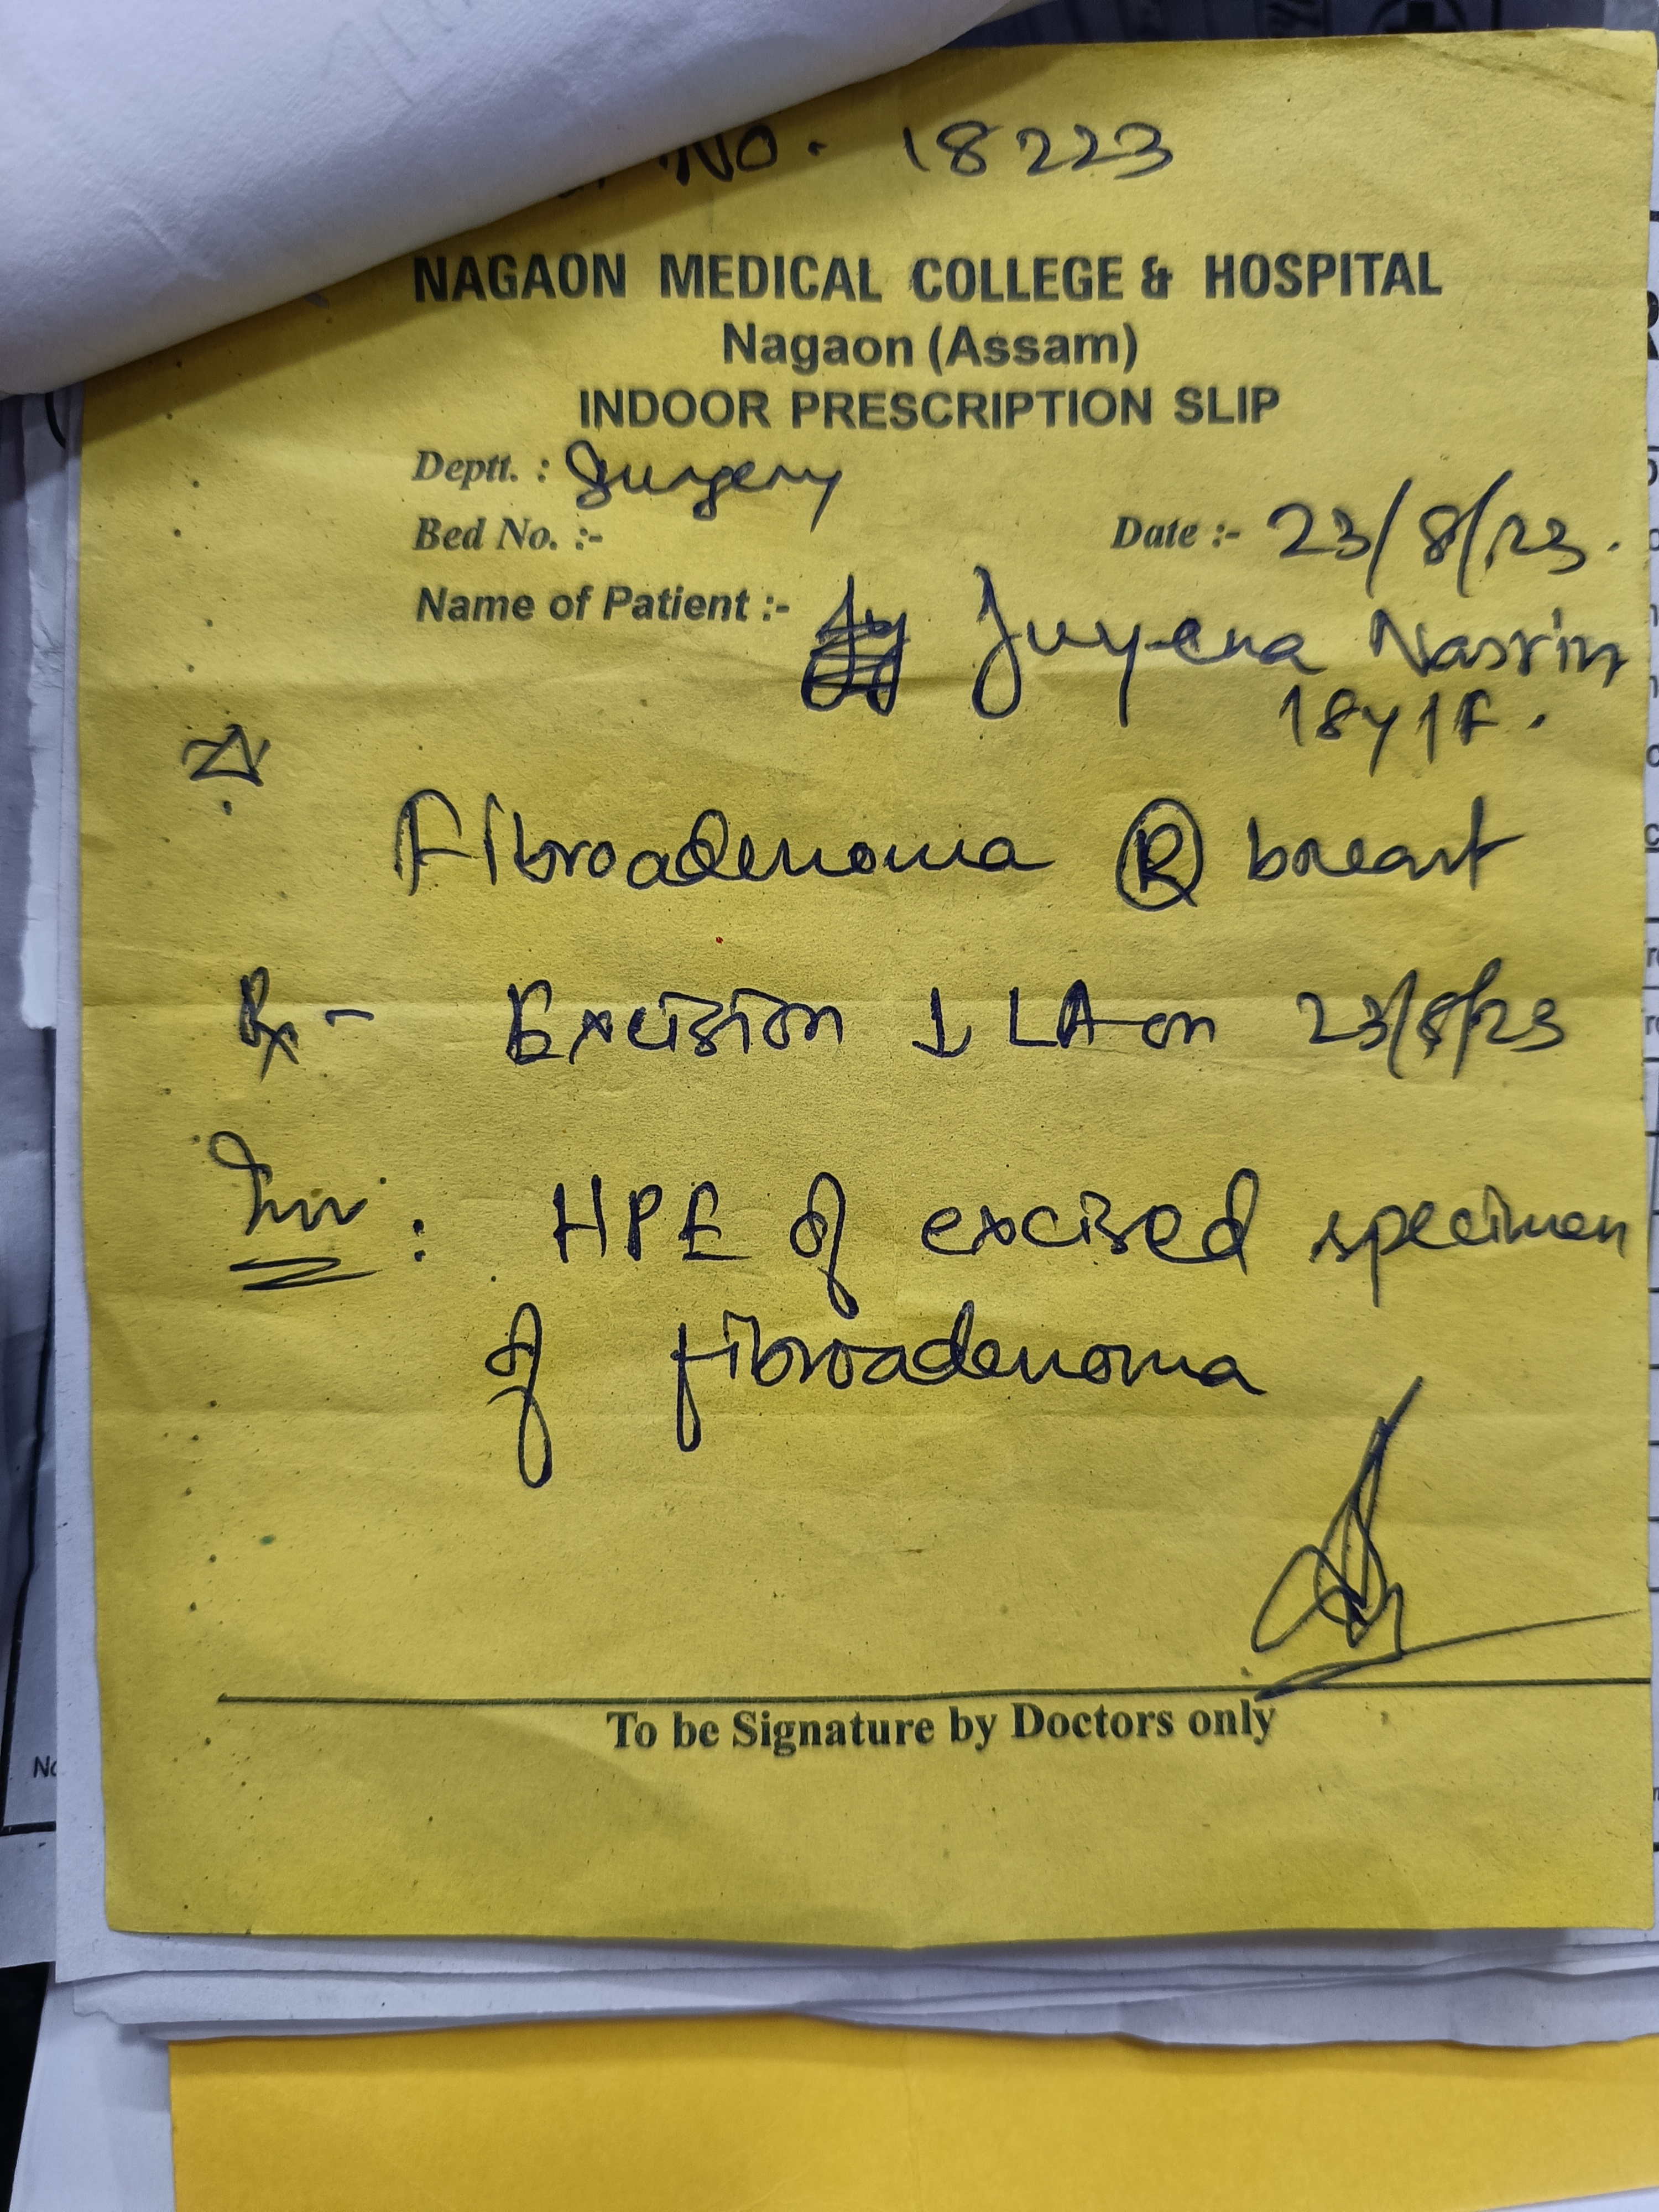 No. 18223
NAGAON MEDICAL COLLEGE & HOSPITAL
Nagaon (Assam)
INDOOR PRESCRIPTION SLIP
Deptt. : Surgery
Bed No. :-
Date :- 23/8/23.
Name of Patient :- Juyena Nasrin
18y/F.
∆
Fibroadenoma Ⓡ breast
Rx - Excision LA on 23/8/23
Inv : HPE of excised specimen
of fibroadenoma
To be Signature by Doctors only